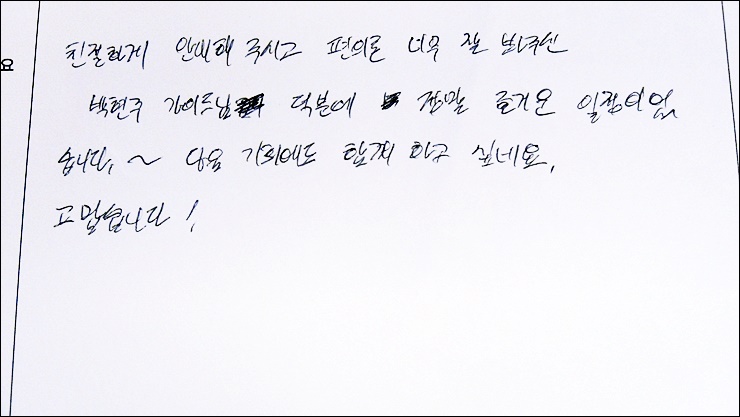 친절하게 안내해 주시고 편의를 너무 잘 봐주신
박현주 가이드님 덕분에 정말 즐거운 일정이었
습니다, ~ 다음 기회에도 함께 하고 싶네요,
고맙습니다!
요